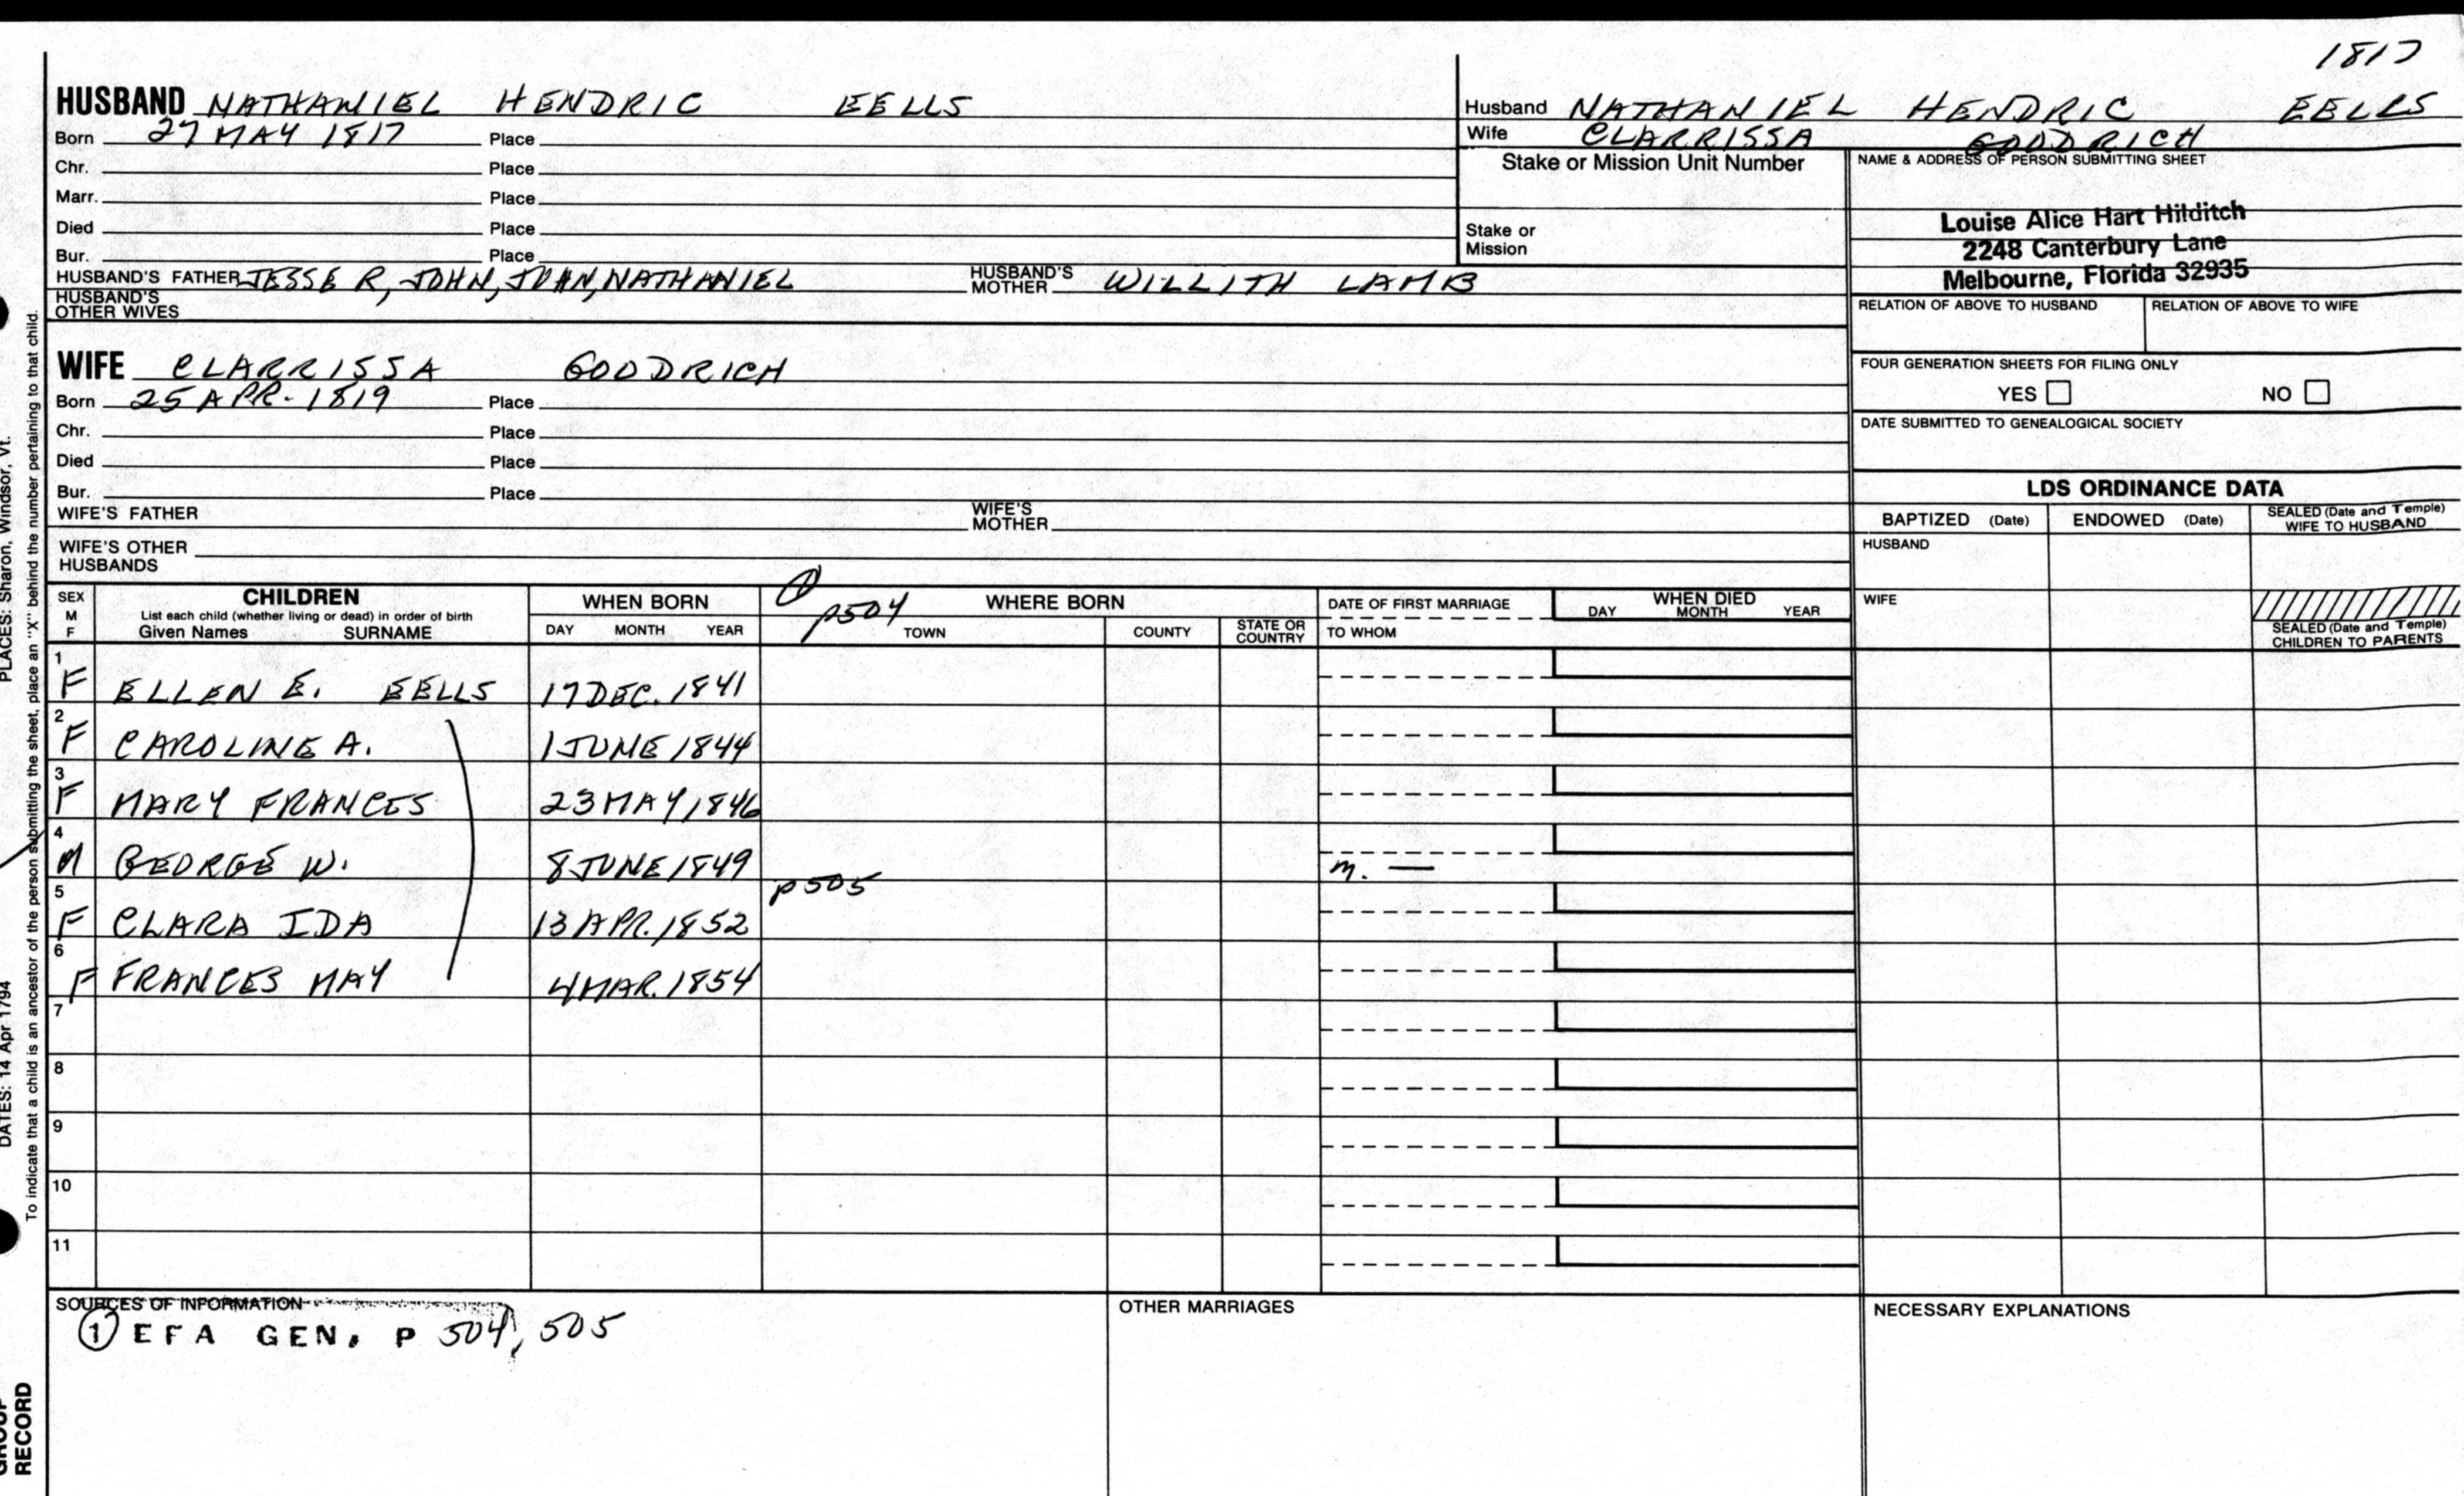 1817
HUSBAND NATHANIEL HENDRIC EELLS
Born 27 MAY 1817 Place
Chr. Place
Marr. Place
Died Place
Bur. Place
HUSBAND'S FATHER JESSE R, JOHN, JOHN, NATHANIEL HUSBAND'S MOTHER WILLITH LAMB
HUSBAND'S OTHER WIVES
Husband NATHANIEL HENDRIC EELLS
Wife CLARRISSA GOODRICH
Stake or Mission Unit Number
Stake or Mission
NAME & ADDRESS OF PERSON SUBMITTING SHEET
Louise Alice Hart Hilditch
2248 Canterbury Lane
Melbourne, Florida 32935
RELATION OF ABOVE TO HUSBAND RELATION OF ABOVE TO WIFE
FOUR GENERATION SHEETS FOR FILING ONLY
YES NO
DATE SUBMITTED TO GENEALOGICAL SOCIETY
WIFE CLARRISSA GOODRICH
Born 25 APR. 1819 Place
Chr. Place
Died Place
Bur. Place
WIFE'S FATHER WIFE'S MOTHER
WIFE'S OTHER HUSBANDS
LDS ORDINANCE DATA
BAPTIZED (Date) ENDOWED (Date) SEALED (Date and Temple) WIFE TO HUSBAND
HUSBAND
WIFE
SEALED (Date and Temple) CHILDREN TO PARENTS
SEX M F
CHILDREN
List each child (whether living or dead) in order of birth
Given Names SURNAME
WHEN BORN
DAY MONTH YEAR
① p504 WHERE BORN
TOWN COUNTY STATE OR COUNTRY
DATE OF FIRST MARRIAGE
TO WHOM
WHEN DIED
DAY MONTH YEAR
1 F ELLEN E. EELLS 17 DEC. 1841
2 F CAROLINE A. 1 JUNE 1844
3 F MARY FRANCES 23 MAY 1846
4 M GEORGE W. 8 JUNE 1849 m. —
p505
5 F CLARA IDA 13 APR. 1852
6 F FRANCES MAY 4 MAR. 1854
7
8
9
10
11
SOURCES OF INFORMATION
① EFA GEN. P 504, 505
OTHER MARRIAGES
NECESSARY EXPLANATIONS
PLACES: Sharon, Windsor, Vt.
DATES: 14 Apr 1794
To indicate that a child is an ancestor of the person submitting the sheet, place an "X" behind the number pertaining to that child.
GROUP
RECORD